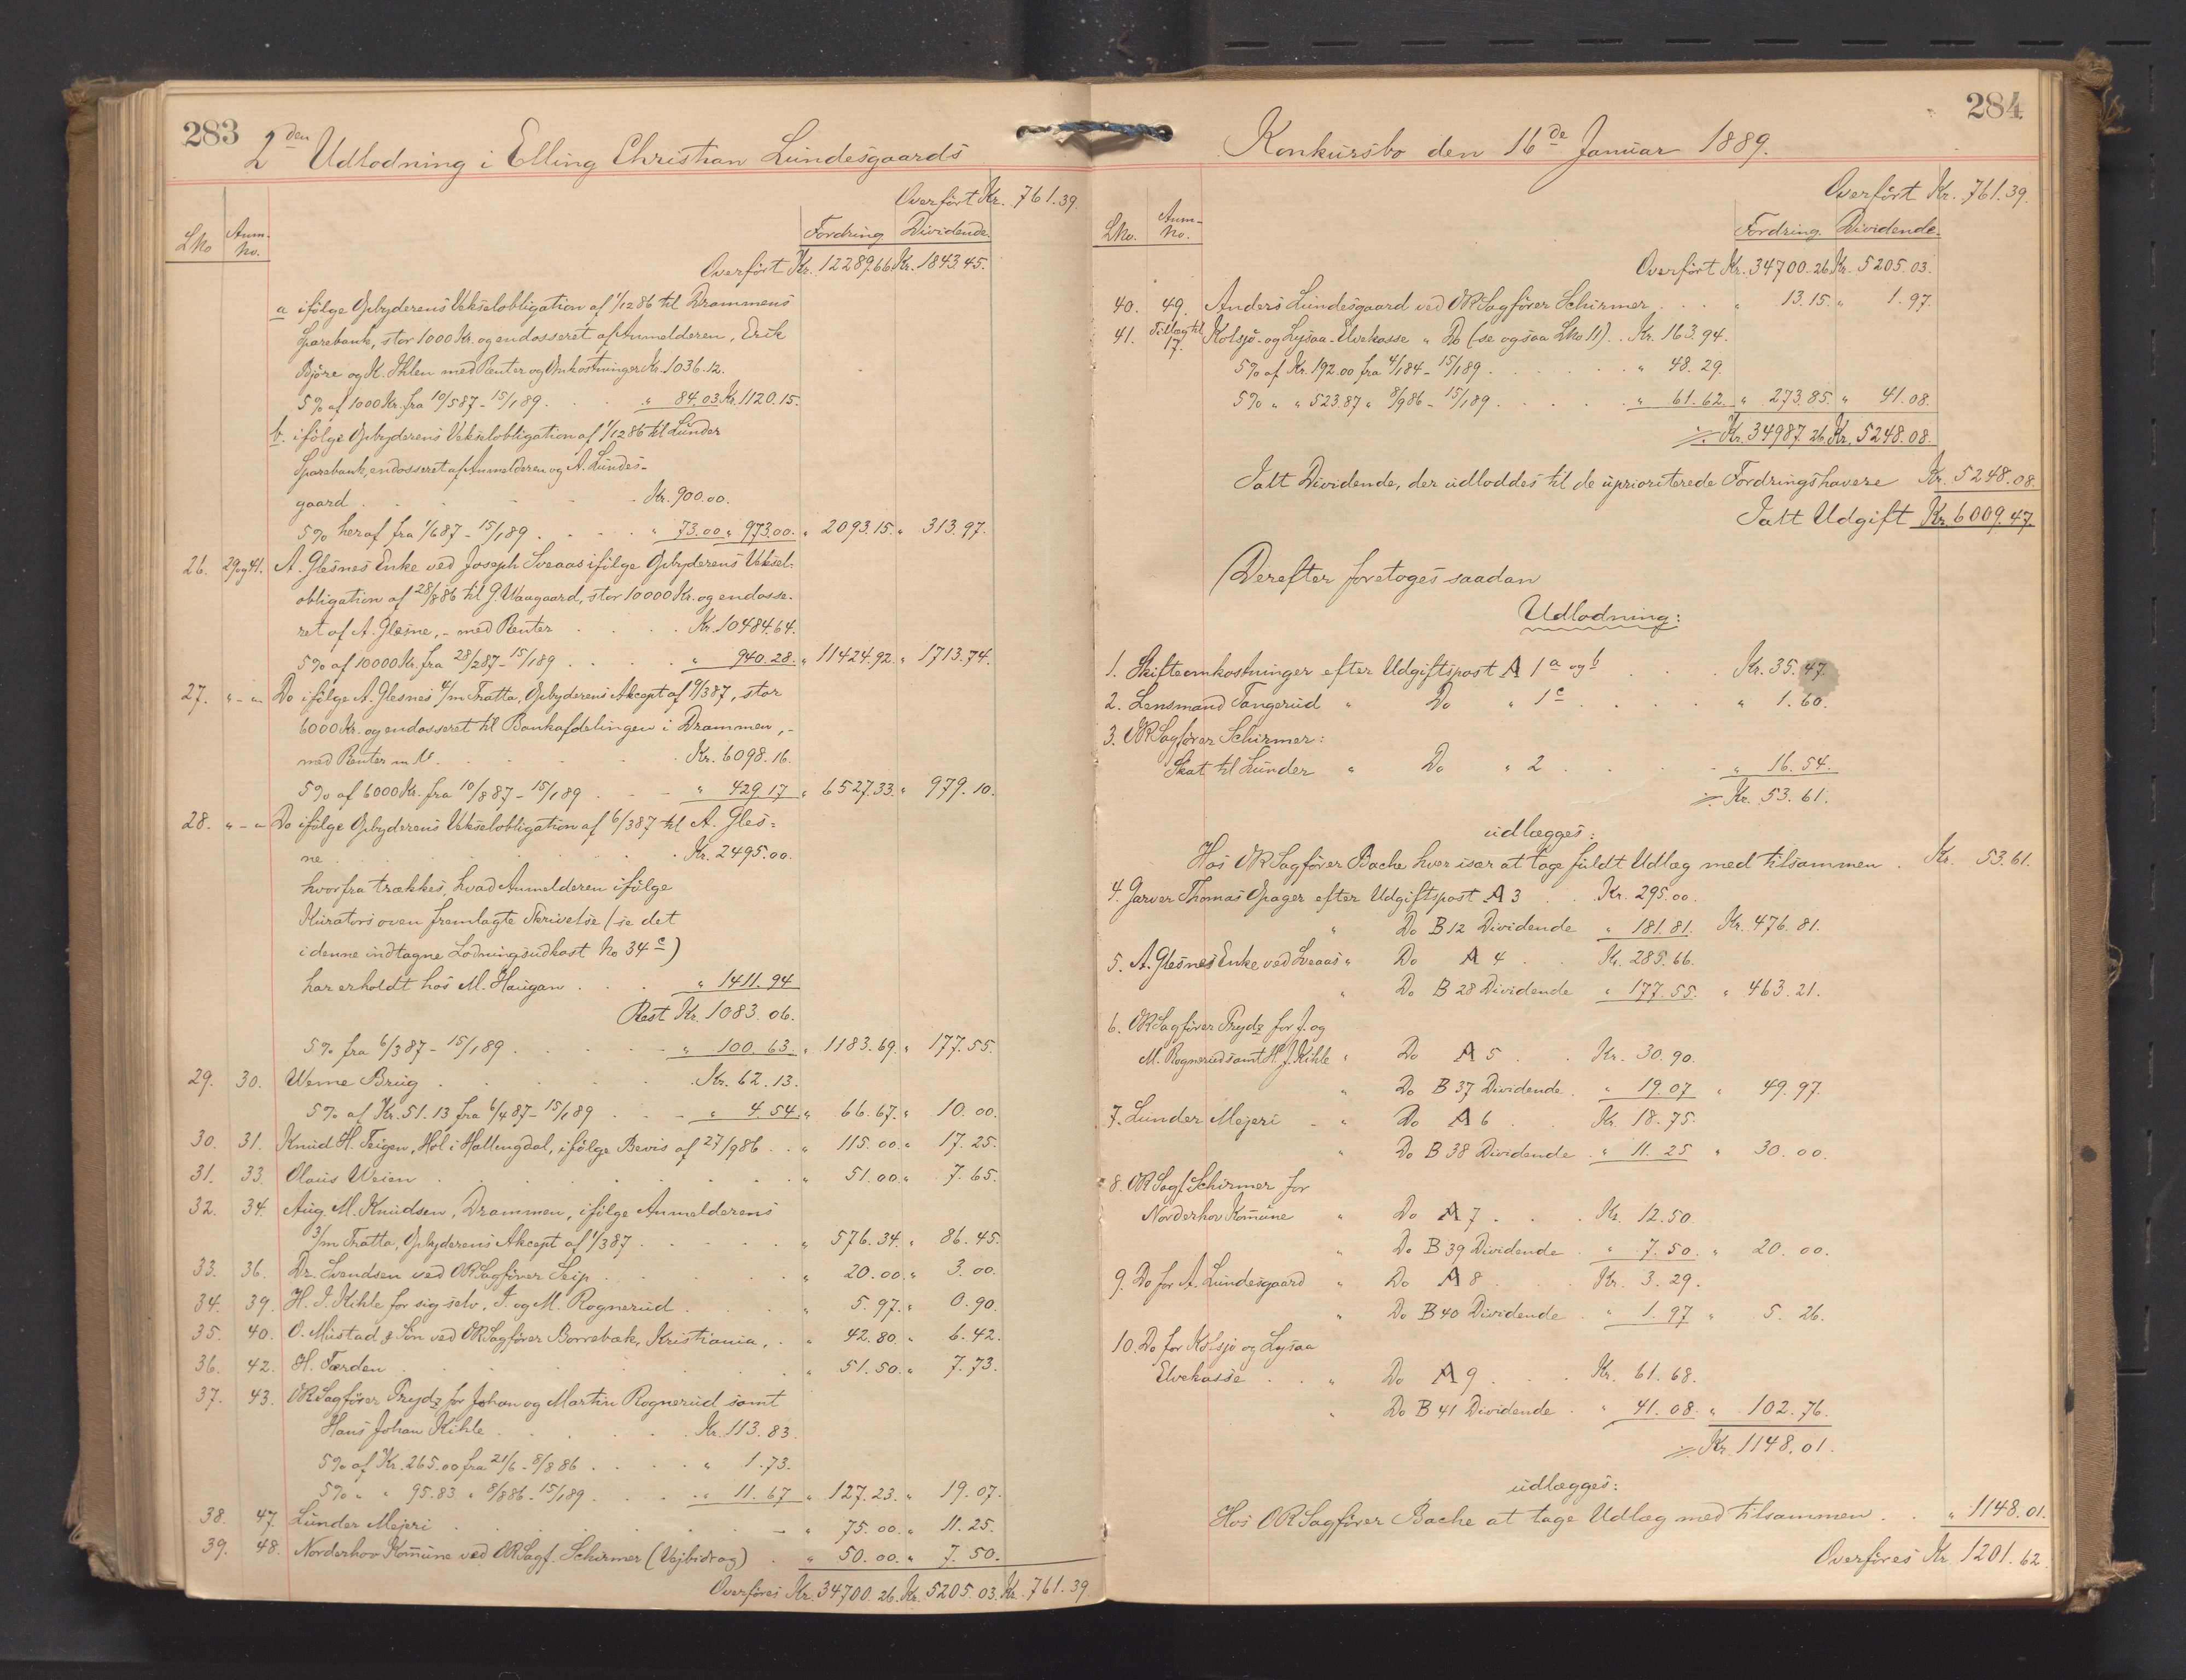 283
2den Udlodning i Elling Christian Lundesgaards
Overført Kr. 761.39.
LNo Anm. No. Fordring Dividende.
Overført Kr. 12289.66 Kr. 1843.45.
a ifølge Opbyderens Vekselobligation af 1/12 86 til Drammens
Sparebank, stor 1000 Kr. og endosseret af Anmelderen, Erik
Björe og K. Ihlen med Renter og Omkostninger Kr. 1036.12.
5% af 1000 Kr. fra 10/5 87 - 15/1 89 . . . " 84.03 Kr. 1120.15.
b. ifølge Opbyderens Vekselobligation af 1/12 86 til Lunder
Sparebank, endosseret af Anmelderen og A. Lundes-
gaard . . . Kr. 900.00.
5% heraf fra 1/6 87 - 15/1 89 . . . " 73.00 " 973.00. " 2093.15. " 313.97.
26. 29 og 41. A. Glesnes Enke ved Joseph Sveaas ifølge Opbyderens Veksel-
obligation af 28/8 86 til G. Waagaard, stor 10000 Kr. og endosse-
ret af A. Glesne, - med Renter . . . Kr. 10484.64.
5% af 10000 Kr. fra 28/2 87 - 15/1 89 . . . " 940.28. " 11424.92. " 1713.74.
27. " - " Do ifølge A. Glesnes 4/m Tratta, Opbyderens Akcept af 9/3 87, stor
6000 Kr. og endosseret til Bankafdelingen i Drammen, -
med Renter m. V. . . . Kr. 6098.16.
5% af 6000 Kr. fra 10/8 87 - 15/1 89 . . - " 429.17 " 6527.33. " 979.10.
28. " - " Do ifølge Opbyderens Vekselobligation af 6/3 87 til A. Gles=
ne . . . Kr. 2495.00.
hvorfra trækkes, hvad Anmelderen ifølge
Kurators oven fremlagte Skrivelse (se det
i denne indtagne Lodningsudkast No 34 c)
har erholdt hos M. Haugan . . . " 1411.94
Rest Kr. 1083.06.
5% fra 6/3 87 - 15/1 89 . . . " 100.63. " 1183.69. " 177.55.
29. 30. Weme Brug . . . Kr. 62.13.
5% af Kr. 51.13 fra 6/4 87 - 15/1 89 . . - " 4.54. " 66.67. " 10.00.
30. 31. Knud H. Teigen, Hol i Hallingdal, ifølge Bevis af 27/9 86 . . " 115.00. " 17.25.
31. 33. Olaus Weien . . . " 51.00. " 7.65.
32. 34. Aug. M. Knudsen, Drammen, ifølge Anmelderens
3/m Tratta, Opbyderens Akcept af 1/3 87 . . . " 576.34. " 86.45.
33. 36. Dr. Svendsen ved ORSagfører Seip . . . " 20.00. " 3.00.
34. 39. H. J. Kihle for sig selv, J. og M. Rognerud . . . " 5.97. " 0.90.
35. 40. O. Mustad & Søn ved ORSagfører Borrebæk, Kristiania, . . " 42.80 " 6.42.
36. 42. H. Færden . . . " 51.50. " 7.73.
37. 43. ORSagfører Prydz for Johan og Martin Rognerud samt
Hans Johan Kihle . . . Kr. 113.83.
5% af Kr. 265.00 fra 21/6 - 8/8 86 . . . " 1.73.
5% " " 95.83 " 8/8 86 - 15/1 89 . . . " 11.67 " 127.23. " 19.07.
38. 47. Lunder Mejeri . . . " 75.00. " 11.25.
39. 48. Norderhov Komune ved ORSagf. Schirmer (Vejbidrag) . " 50.00. " 7.50.
Overføres Kr. 34700.26. Kr. 5205.03. Kr. 761.39
284
Konkursbo den 16de Januar 1889.
Overført Kr. 761.39.
LNo. Anm- No. Fordring. Dividende.
Overført Kr. 34700.26 Kr. 5205.03.
40. 49. Anders Lundesgaard ved ORSagfører Schirmer . . . " 13.15. " 1.97.
41. Tillæg til 17. Kolsjø- og Lysaa-Elvekasse " Do (se ogsaa LNo 11) . . Kr. 163.94.
5% af Kr. 192.00 fra 4/1 84 - 15/1 89 . . . " 48.29.
5% " " 523.87 " 8/9 86 - 15/1 89 . . . " 61.62. " 273.85. " 41.08.
Kr. 34987.26. Kr. 5248.08.
Ialt Dividende, der udloddes til de uprioriterede Fordringshavere Kr. 5248.08.
Ialt Udgift Kr. 6009.47.
Derefter foretoges saadan
Udlodning:
1. Skifteomkostninger efter Udgiftspost A 1 a og b . . . Kr. 35.47.
2. Lensmand Tangerud " Do " 1 c . . . " 1.60.
3. ORSagfører Schirmer:
Skat til Lunder " Do " 2 . . . " 16.54.
Kr. 53.61.
udlægges:
Hos ORSagfører Bache hver især at tage fuldt Udlæg med tilsammen . Kr. 53.61.
4. Garver Thomas Opager efter Udgiftspost A 3 . . Kr. 295.00.
" Do B 12 Dividende " 181.81. Kr. 476.81.
5. A. Glesnes Enke ved Sveaas " Do A 4 . . Kr. 285.66.
" Do B 28 Dividende " 177.55. " 463.21.
6. ORSagfører Prydz for J. og
M. Rognerud samt H. J. Kihle " Do A 5 . . Kr. 30.90.
" Do B 37 Dividende . " 19.07 " 49.97.
7. Lunder Mejeri - " Do A 6 . . Kr. 18.75.
" Do B 38 Dividende . " 11.25 " 30.00.
8. ORSagf. Schirmer for
Norderhov Komune " Do A 7 . . . Kr. 12.50.
" Do B 39 Dividende . " 7.50. " 20.00.
9. Do for A. Lundesgaard " Do A 8 . . . Kr. 3.29.
" Do B 40 Dividende . " 1.97 " 5.26.
10. Do for Kolsjø og Lysaa
Elvekasse . . " Do A 9 . . . Kr. 61.68.
" Do B 41 Dividende . " 41.08. " 102.76.
Kr. 1148.01.
udlægges:
Hos ORSagfører Bache at tage Udlæg med tilsammen . . " 1148.01.
Overføres Kr. 1201.62.